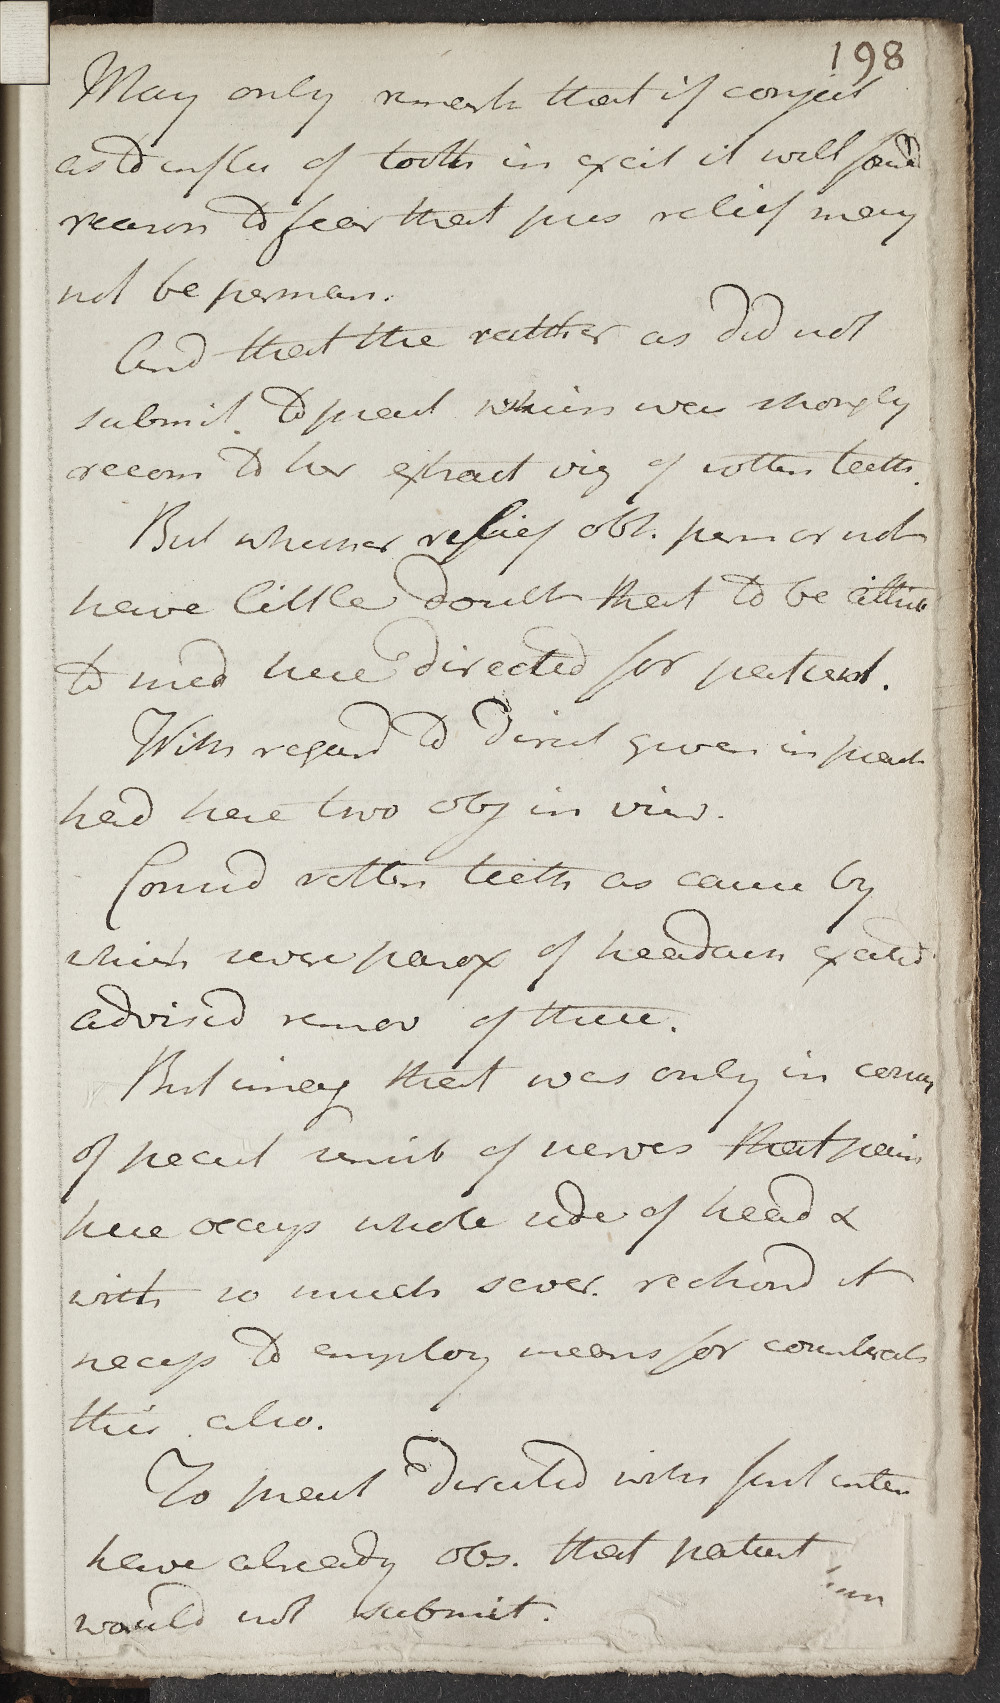 198
May only remark that if conject
as to influ of tooth in excit it well found
reason to fear that pres relief may
not be perman.
And that the rather as did not
submit. to pract which was strongly
recom to her extract viz of rotten teeth.
But whether relief obt. perm or not
have little doubt that to be attrib
to med here directed for patient.
With regard to direct given in pract
had here two obj in view.
Consid rotten teeth as cause by
which severe parox of headach excited
advised remov of these.
But imag that was only in conseq
of pecul sensib of nerves that pain
here occup whole side of head &
with so much sever. reckond it
necess to employ means for counteract
this also.
To pract directed with first inten
have already obs. that patient
would not submit.